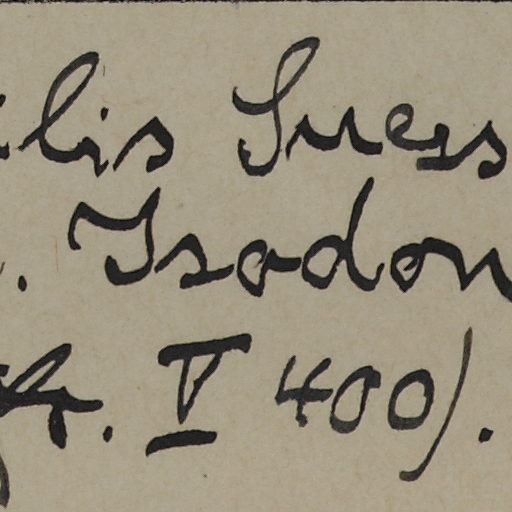 ilis Suess
. Isodon
fr. V 400).